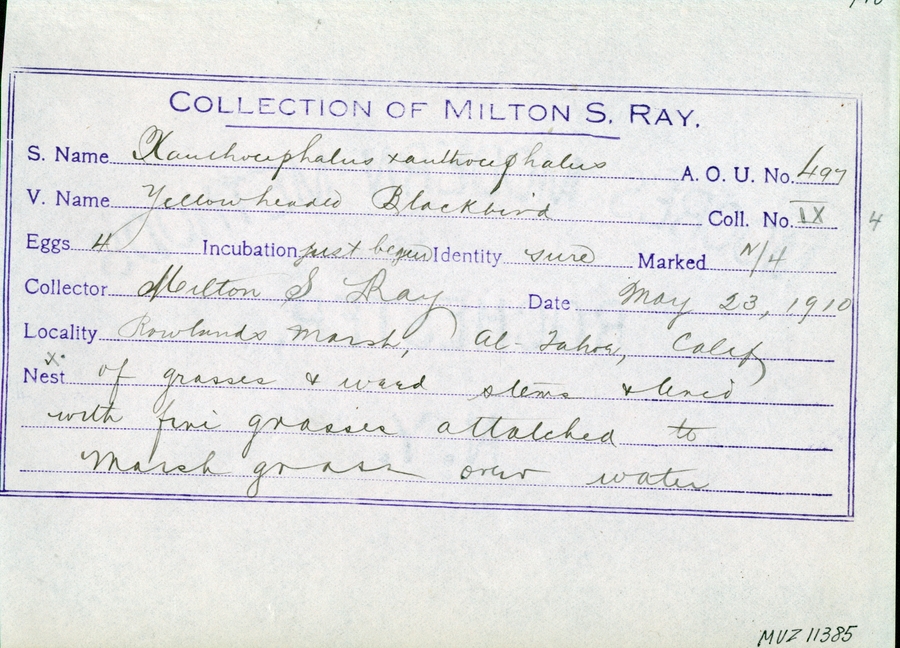 COLLECTION OF MILTON S. RAY.
S. Name Xanthocephalus xanthocephalus A. O. U. No. 497
V. Name Yellowheaded Blackbird Coll. No. IX 4
Eggs 4 Incubation just begun Identity sure Marked N/4
Collector Milton S Ray Date May 23, 1910
Locality Rowlands Marsh, Al-Tahoe, Calif
x.
Nest of grasses & weed stems & lined
with fine grasses attatched to
Marsh grass over water
MUZ 11385